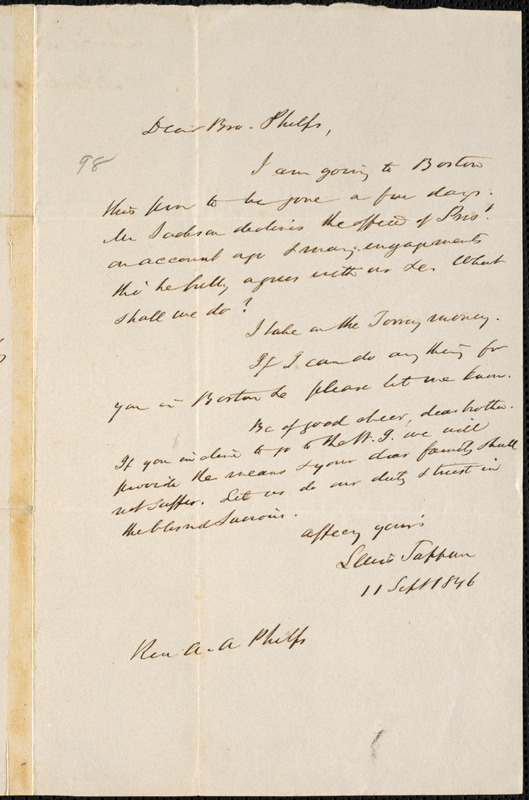 Dear Bro. Phelps,
98
I am going to Boston
this p.m. to be gone a few days.
Mr Jackson declines the office of Pres't
on account age & many engagements
tho' he fully agrees with us &c. What
shall we do?
I take on the Torrey money.
If I can do any thing for
you in Boston &c please let me know.
Be of good cheer, dear brother.
If you incline to go to the W. I. we will
provide the means & your dear family shall
not suffer. Let us do our duty & trust in
the blessed Saviour.
Affecy yours
Lewis Tappan
11 Sept 1846
Rev A. A Phelps